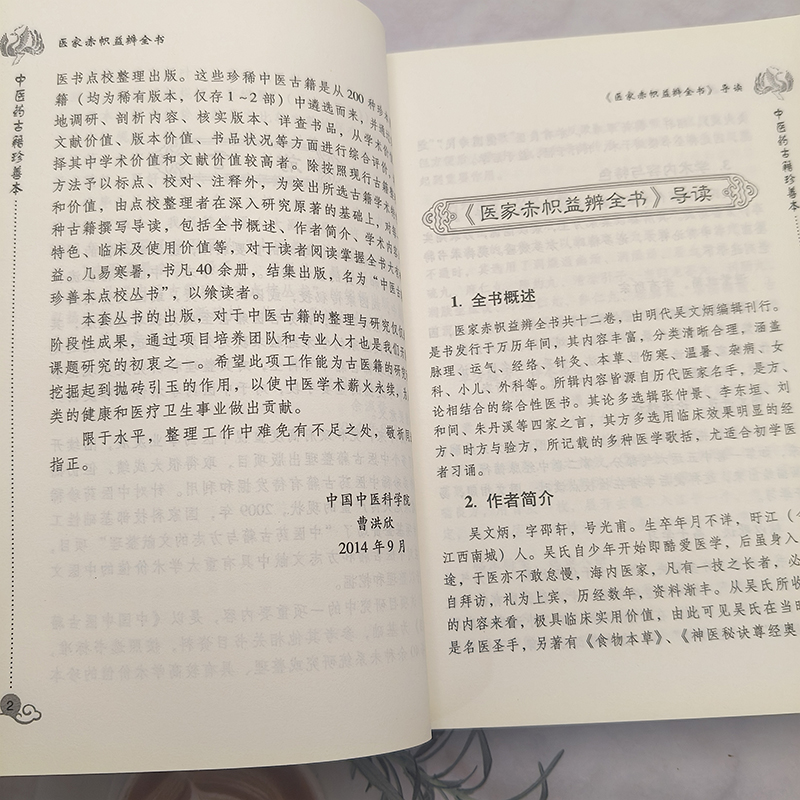 医家赤帜益辨全书
中医药古籍珍善本
医书点校整理出版。这些珍稀中医古籍是从200种珍本
籍（均为稀有版本，仅存1～2部）中遴选而来，并通
地调研、剖析内容、核实版本、详查书品，从学术价
文献价值、版本价值、书品状况等方面进行综合评价
择其中学术价值和文献价值较高者。除按照现行古籍
方法予以标点、校对、注释外，为突出所选古籍学术
和价值，由点校整理者在深入研究原著的基础上，对
种古籍撰写导读，包括全书概述、作者简介、学术内
特色、临床及使用价值等，对于读者阅读掌握全书大
益。几易寒暑，书凡40余册，结集出版，名为“中医古
珍善本点校丛书”，以飨读者。
本套丛书的出版，对于中医古籍的整理与研究仅
阶段性成果，通过项目培养团队和专业人才也是我们
课题研究的初衷之一。希望此项工作能为古医籍的研
挖掘起到抛砖引玉的作用，以使中医学术薪火永续，为
类的健康和医疗卫生事业做出贡献。
限于水平，整理工作中难免有不足之处，敬祈
指正。
中国中医科学院
曹洪欣
2014年9月
2
《医家赤帜益辨全书》导读
中医药古籍珍善本
《医家赤帜益辨全书》导读
1. 全书概述
医家赤帜益辨全书共十二卷，由明代吴文炳编辑刊行。
是书发行于万历年间，其内容丰富，分类清晰合理，涵盖
脉理、运气、经络、针灸、本草、伤寒、温暑、杂病、女
科、小儿、外科等。所辑内容皆源自历代医家名手，是方、
论相结合的综合性医书。其论多选辑张仲景、李东垣、刘
和间、朱丹溪等四家之言，其方多选用临床效果明显的经
方、时方与验方，所记载的多种医学歌括，尤适合初学医
者习诵。
2. 作者简介
吴文炳，字邵轩，号光甫。生卒年月不详，旴江（今
江西南城）人。吴氏自少年开始即酷爱医学，后虽身入
途，于医亦不敢怠慢，海内医家，凡有一技之长者，必
自拜访，礼为上宾，历经数年，资料渐丰。从吴氏所收
的内容来看，极具临床实用价值，由此可见吴氏在当时
是名医圣手，另著有《食物本草》、《神医秘诀尊经奥